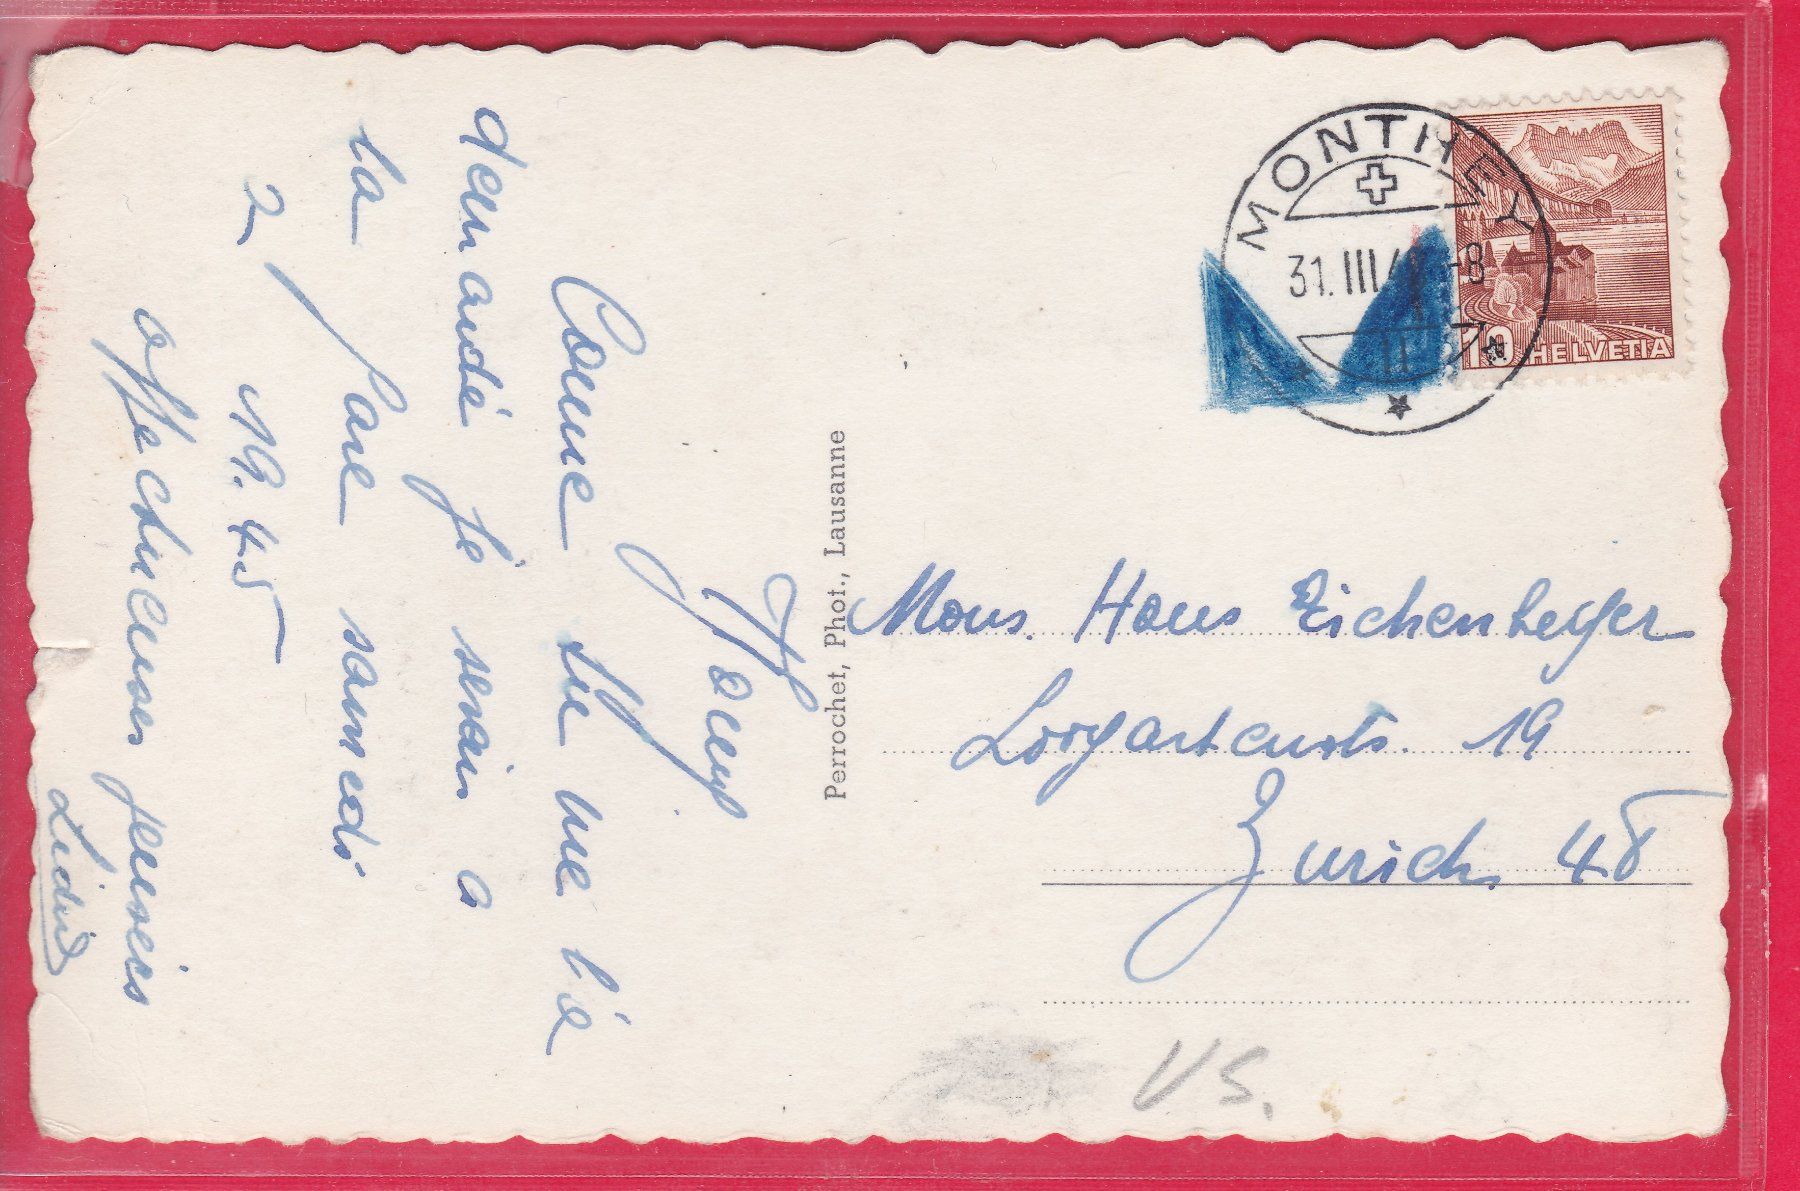 Comme tu me l'a
demandé je serai a
la gare samedi
2 19.45
affectueuses pensées
Perrochet, Phot., Lausanne
MONTHEY
31.III -8
10 HELVETIA
Mons. Hans Eichenberger
19
Zurich 48
VS.